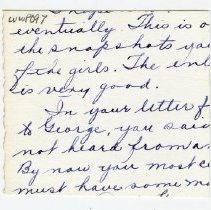 I hope
ww8097
eventually. This is o
the snapshots you
of the girls. The enl
is very good.
In your letter f
to George, you said
not heard from an
By now you most c
must have some mo